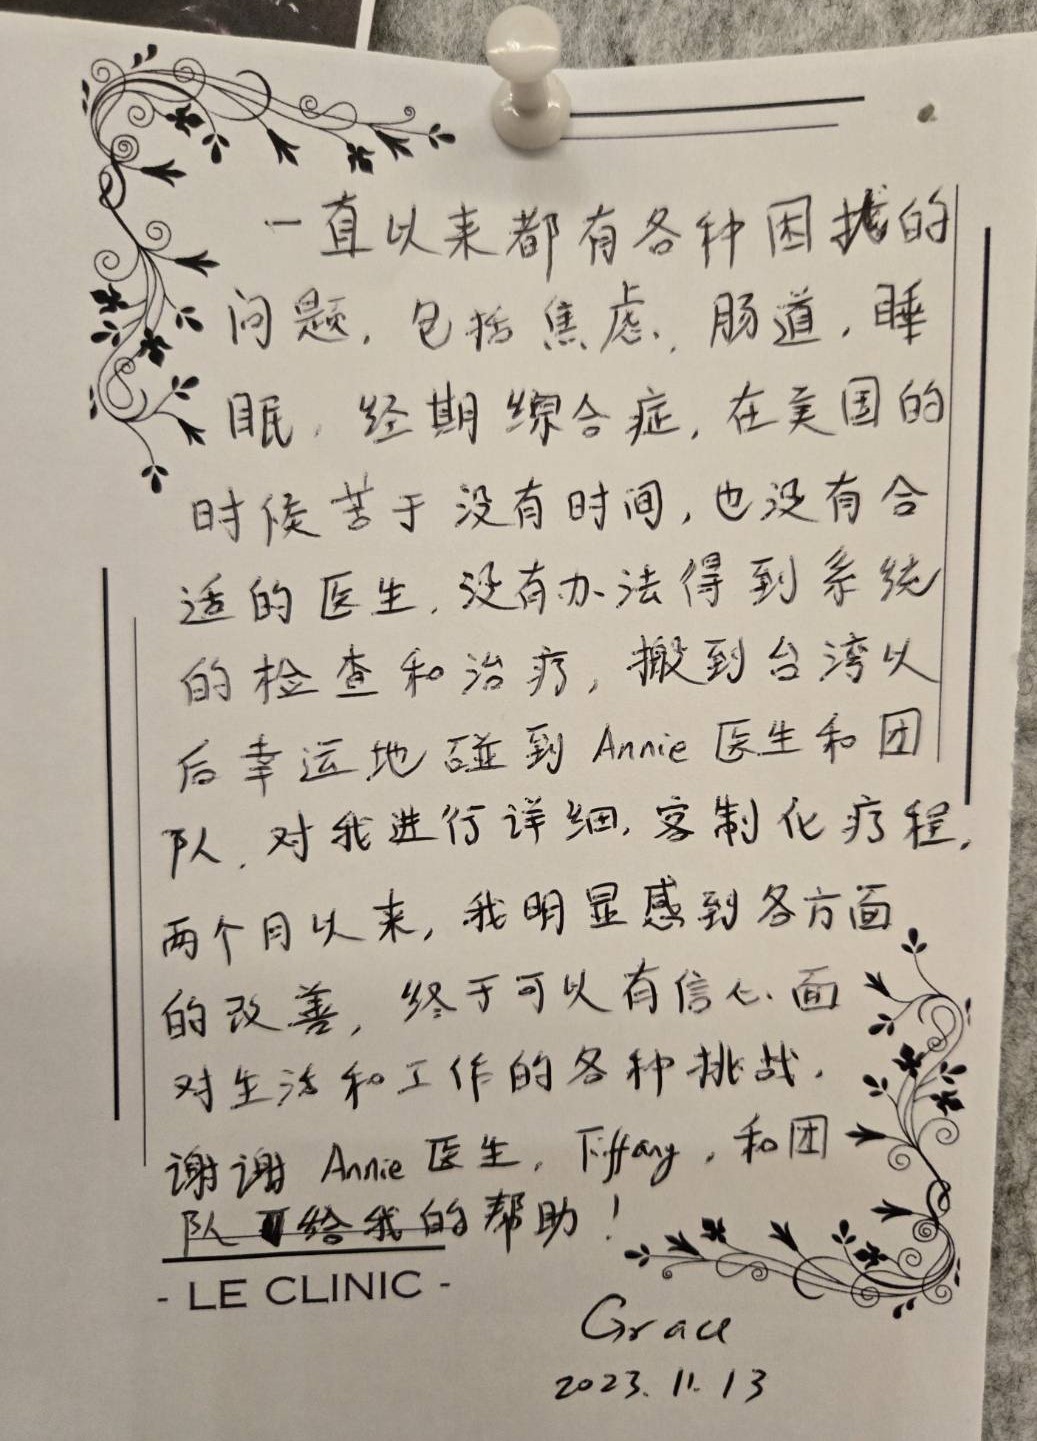 一直以来都有各种困扰的
问题，包括焦虑，肠道，睡
眠，经期综合症，在美国的
时候苦于没有时间，也没有合
适的医生，没有办法得到系统
的检查和治疗，搬到台湾以
后幸运地碰到 Annie 医生和团
队，对我进行详细，客制化疗程，
两个月以来，我明显感到各方面
的改善，终于可以有信心面
对生活和工作的各种挑战．
谢谢 Annie 医生，Tiffany，和团
队给我的帮助！
- LE CLINIC -
Grace
2023.11.13